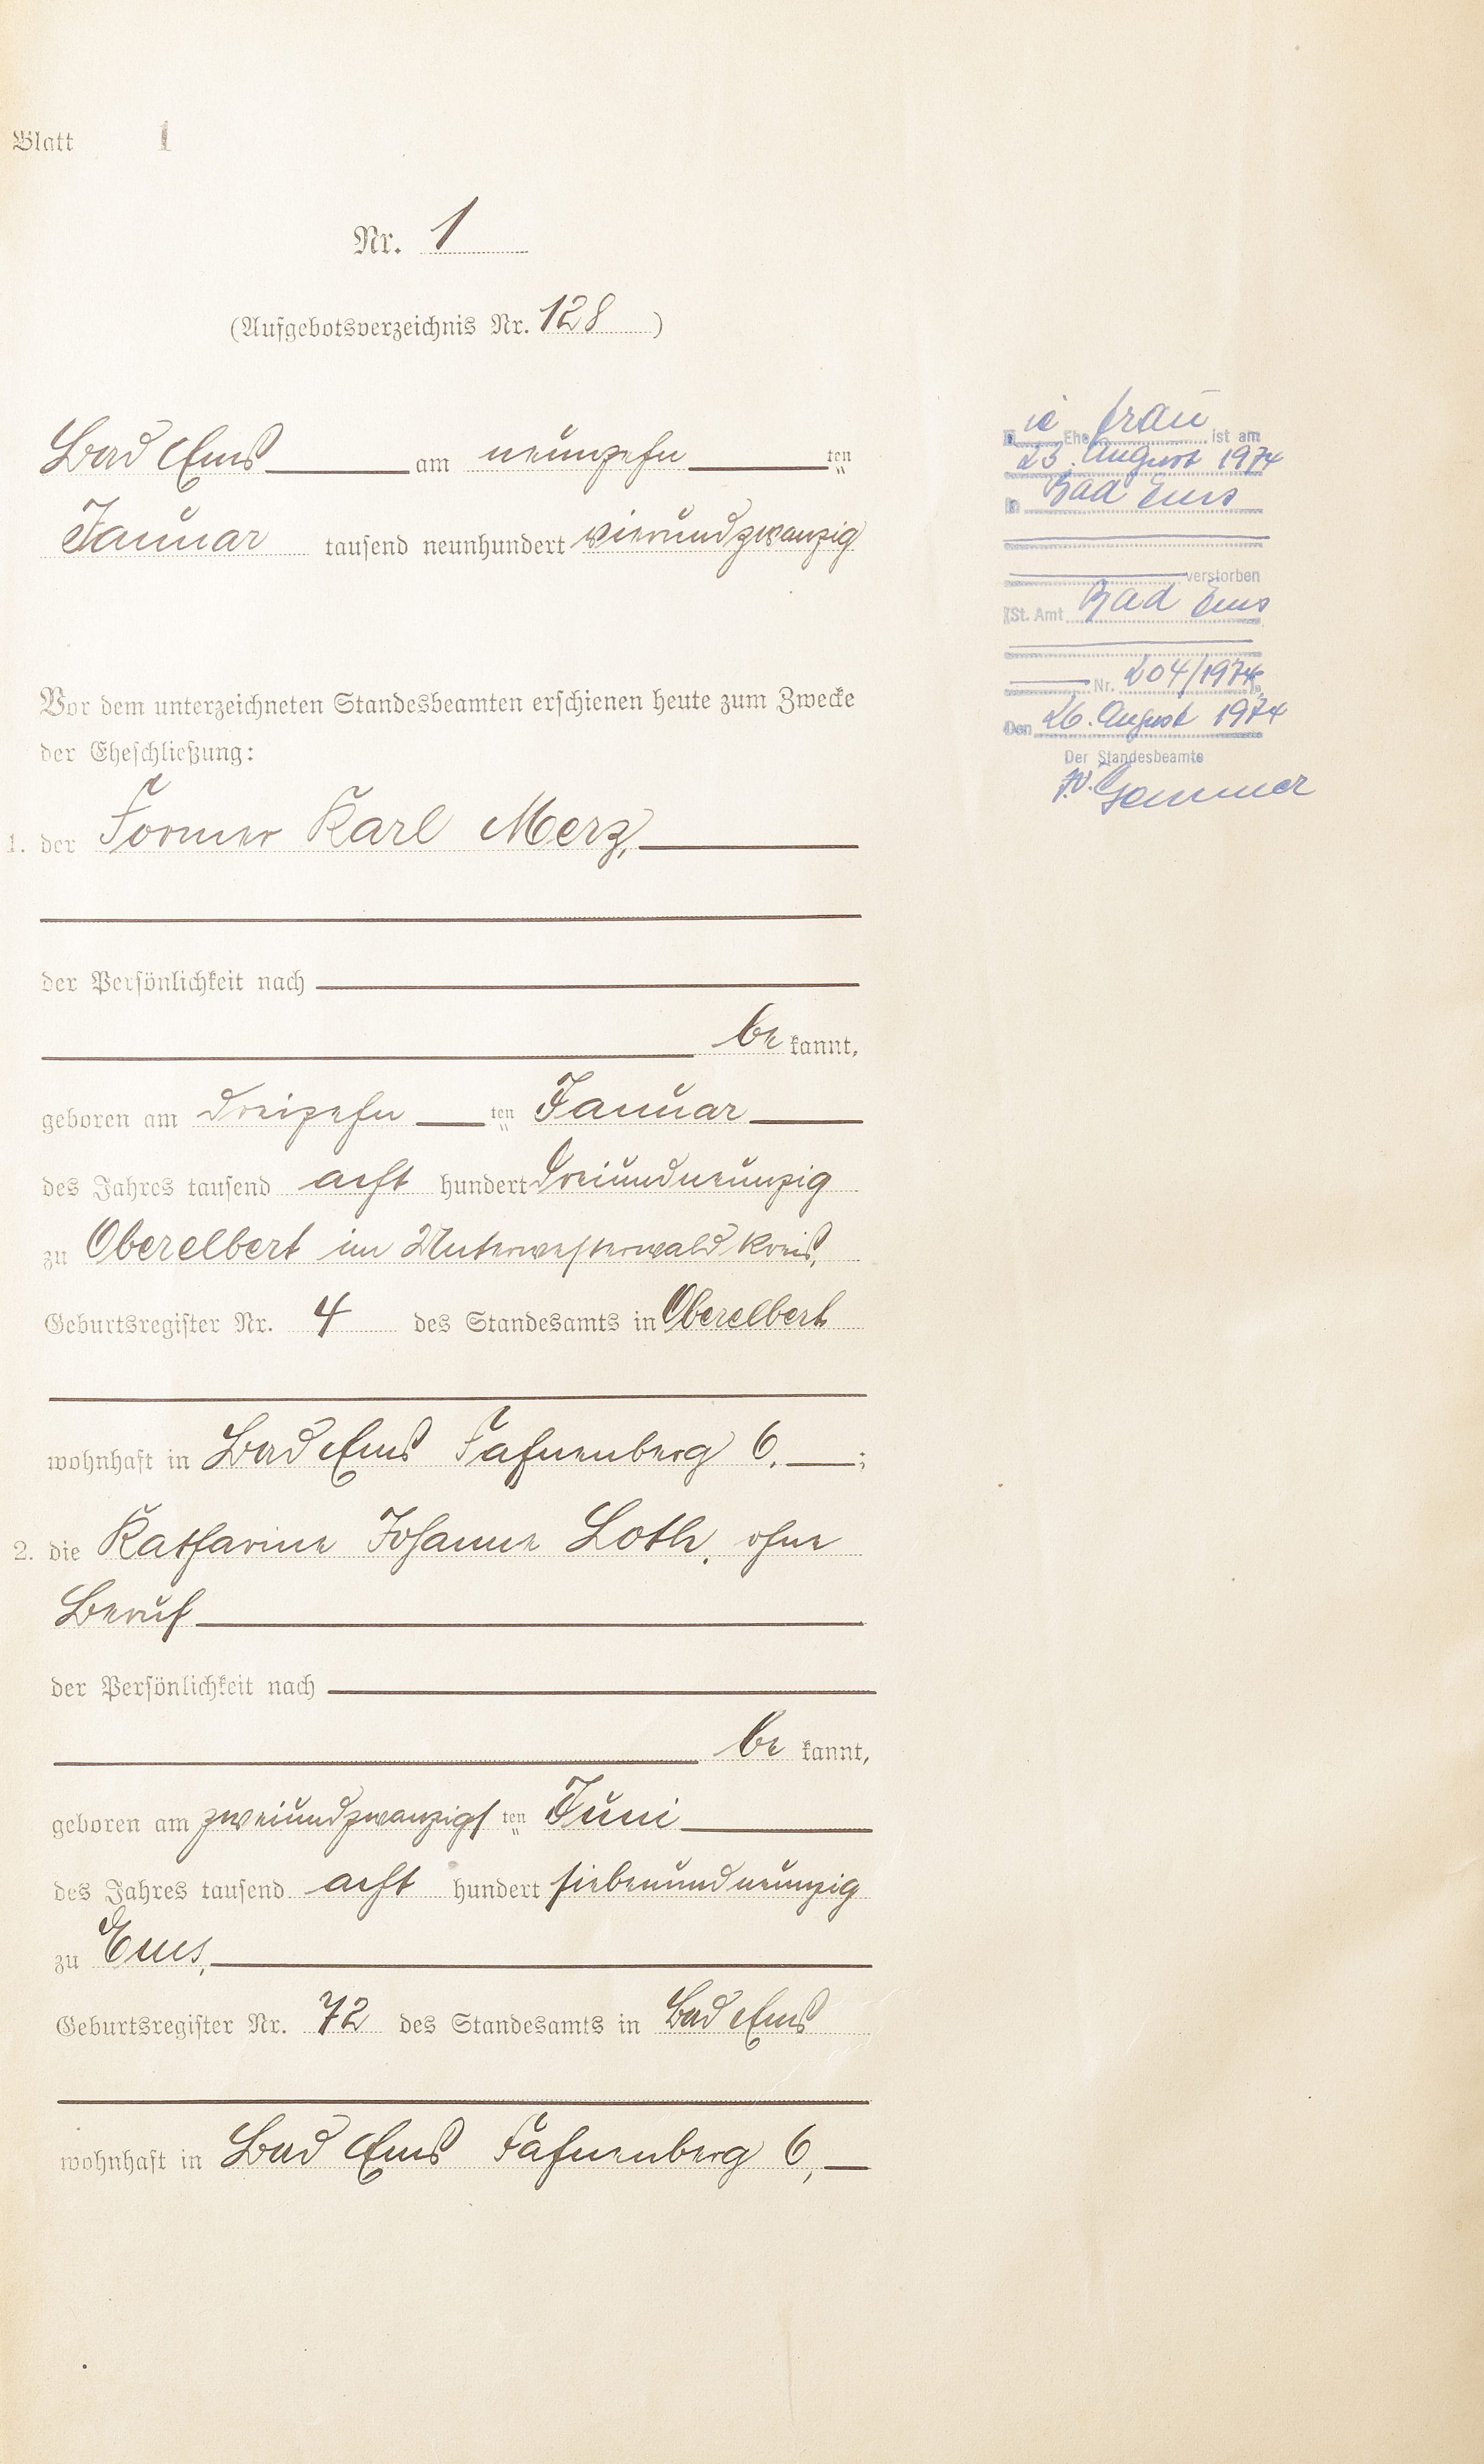 Blatt 1
Nr. 1
(Aufgebotsverzeichnis Nr. 128)
Bad Ems am neunzehnten
Januar tausend neunhundert vierundzwanzig
Vor dem unterzeichneten Standesbeamten erschienen heute zum Zwecke
der Eheschließung:
1. der Former Karl Merz,
der Persönlichkeit nach
bekannt,
geboren am dreizehnten Januar
des Jahres tausend acht hundert dreiundneunzig
zu Oberelbert im Unterwesterwaldkreis,
Geburtsregister Nr. 4 des Standesamts in Oberelbert
wohnhaft in Bad Ems Fahnenberg 6.;
2. die Katharine Johanne Loth, ohne
Beruf
der Persönlichkeit nach
bekannt,
geboren am zweiundzwanzigsten Juni
des Jahres tausend acht hundert siebenundneunzig
zu Ems,
Geburtsregister Nr. 72 des Standesamts in Bad Ems
wohnhaft in Bad Ems Fahnenberg 6,
Die Ehefrau ist am
23. August 1974
in Bad Ems
verstorben
(St. Amt Bad Ems
Nr. 204/1974).
Den 26. August 1974
Der Standesbeamte